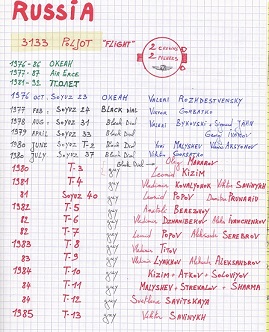 RUSSIA
3133 POLJOT "FLIGHT"
2 CROWNS
2 PUSHERS
1976-86 ОКЕАН
1977-87 AIR FORCE
1981-92 ПОЛЕТ
1976 OCT. SOYUZ 23 ОКЕАН VALERI ROZHDESTVENSKY
1977 FEB. SOYUZ 24 BLACK DIAL VIKTOR GORBATKO
1978 AUG. SOYUZ 31 Black Dial VALERI BYKOVSKI + Sigmund JÄHN
1979 APRIL SOYUZ 33 Black Dial
1980 JUNE SOYUZ T-2 Black Dial Yuri MALYSHEV Vladimir AKSYONOV
1980 JULY SOYUZ 37 Black Dial Viktor Gorbatko
1980 T-3 Oleg MAKAROV
1980 T-4 Leonid KIZIM
1981 T-4 Vladimir KOVALYONOK Viktor SAVINYKH
81 SOYUZ 40 Leonid POPOV Dumitru PRUNARIU
1982 T-5 Anatoli BEREZOVOY
82 T-6 Vladimir DZHANIBEKOV Aleks IVANCHENKOV
82 T-7 Leonid POPOV Aleksandr SEREBROV
1983 T-8 Vladimir TITOV
83 T-9 Vladimir LYAKHOV Aleksandr ALEKSANDROV
1984 T-10 KIZIM + ATKOV + SOLOVIYOV
84 T-11 MALYSHEV + STREKALOV + SHARMA
84 T-12 Svetlana SAVITSKAYA
1985 T-13 Viktor SAVINYKH